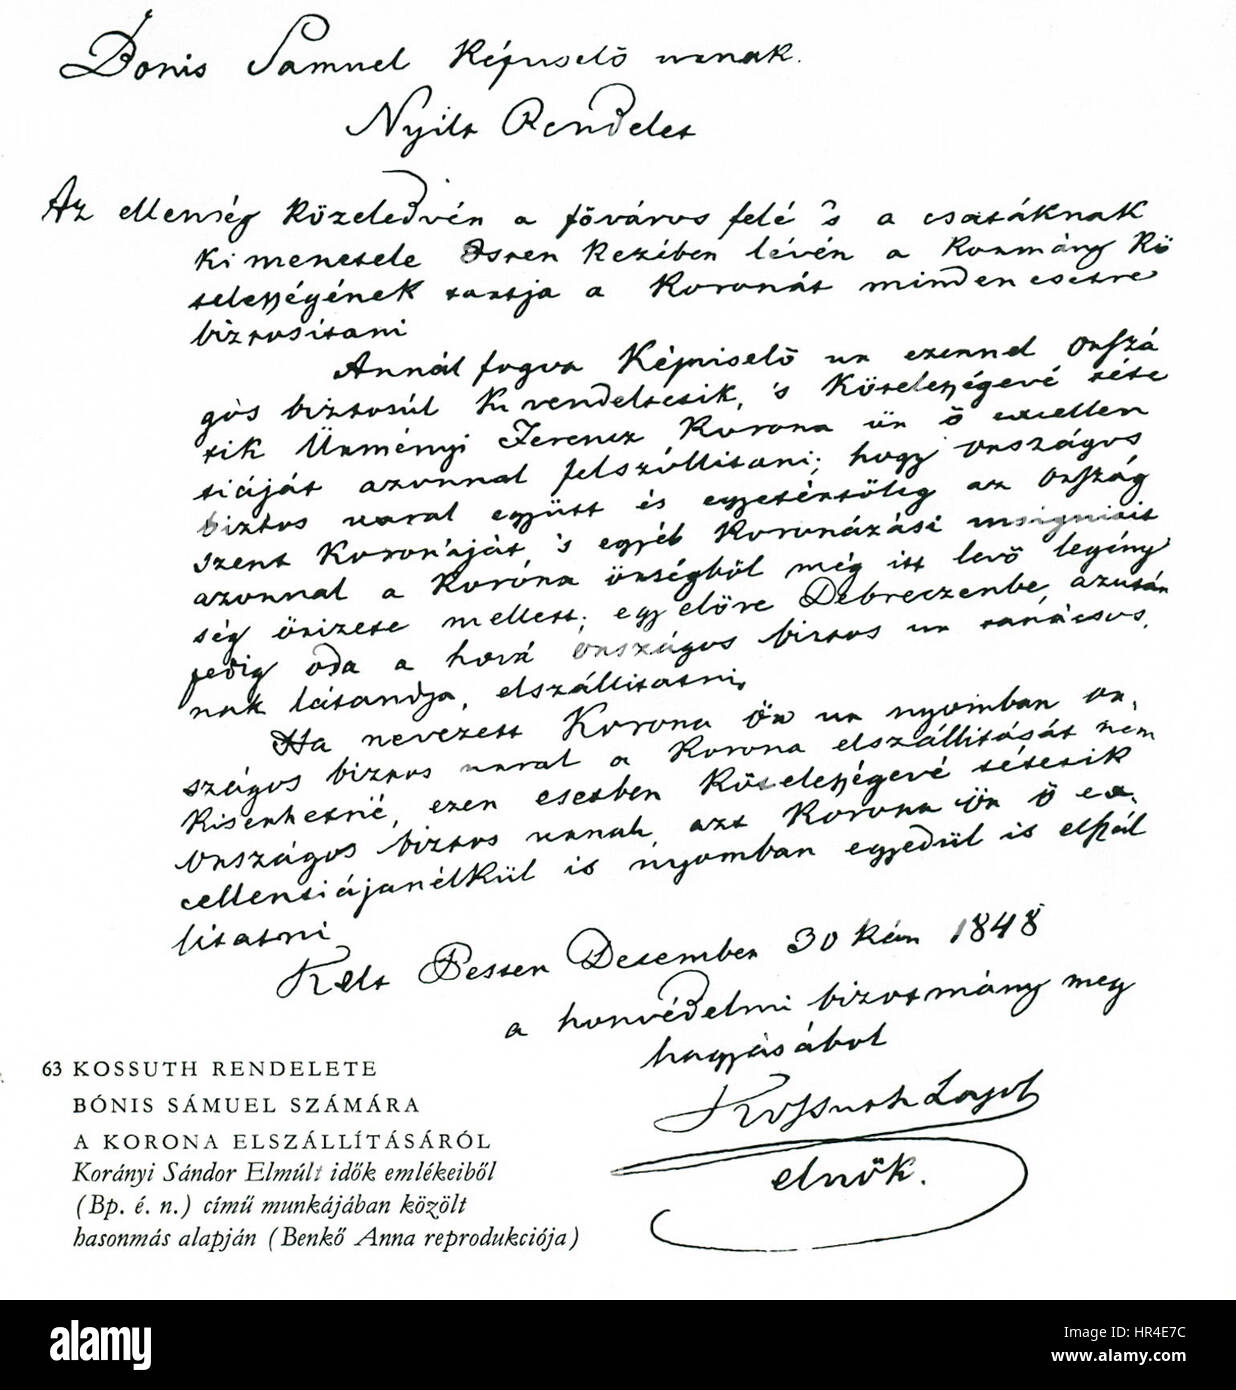 Bónis Samuel Képviselő urnak.
Nyilt Rendelet
Az ellenség közeledvén a főváros felé 's a csatáknak
kimenetele Isten kezében lévén a Kormány kö
telességének tartja a Koronát mindenesetre
biztositani
Annál fogva Képviselő ur ezennel orszá
gos biztosúl kirendeltetik, 's kötelességévé téte
tik Ürményi Ferencz Korona őr ő excellen
tiáját azonnal felszóllitani; hogy országos
biztos urral együtt és egyetértőleg az ország
szent koronáját 's egyéb koronázási insigniáit
azonnal a korona őrségből még itt levő legény
ség őrizete mellett; egyelőre Debreczenbe, azután
pedig oda a hová országos biztos ur tanácsos.
nak látandja, elszállitatni,
Ha nevezett Korona őr ur nyomban or,
szágos biztos urral a Korona elszállitását nem
kisérhetné, ezen esetben kötelességévé tétetik
országos biztos urnak, azt Korona őr ő ex,
cellentiája nélkül is nyomban egyedül is elszál
litatni
Kelt Pesten December 30 kán 1848
a honvédelmi bizotmány meg
hagyásábol
Kossuth Lajos
elnök.
63 KOSSUTH RENDELETE
BÓNIS SÁMUEL SZÁMÁRA
A KORONA ELSZÁLLÍTÁSÁRÓL
Korányi Sándor Elmúlt idők emlékeiből
(Bp. é. n.) című munkájában közölt
hasonmás alapján (Benkő Anna reprodukciója)
a
alamy
Image ID: HR4E7C
www.alamy.com